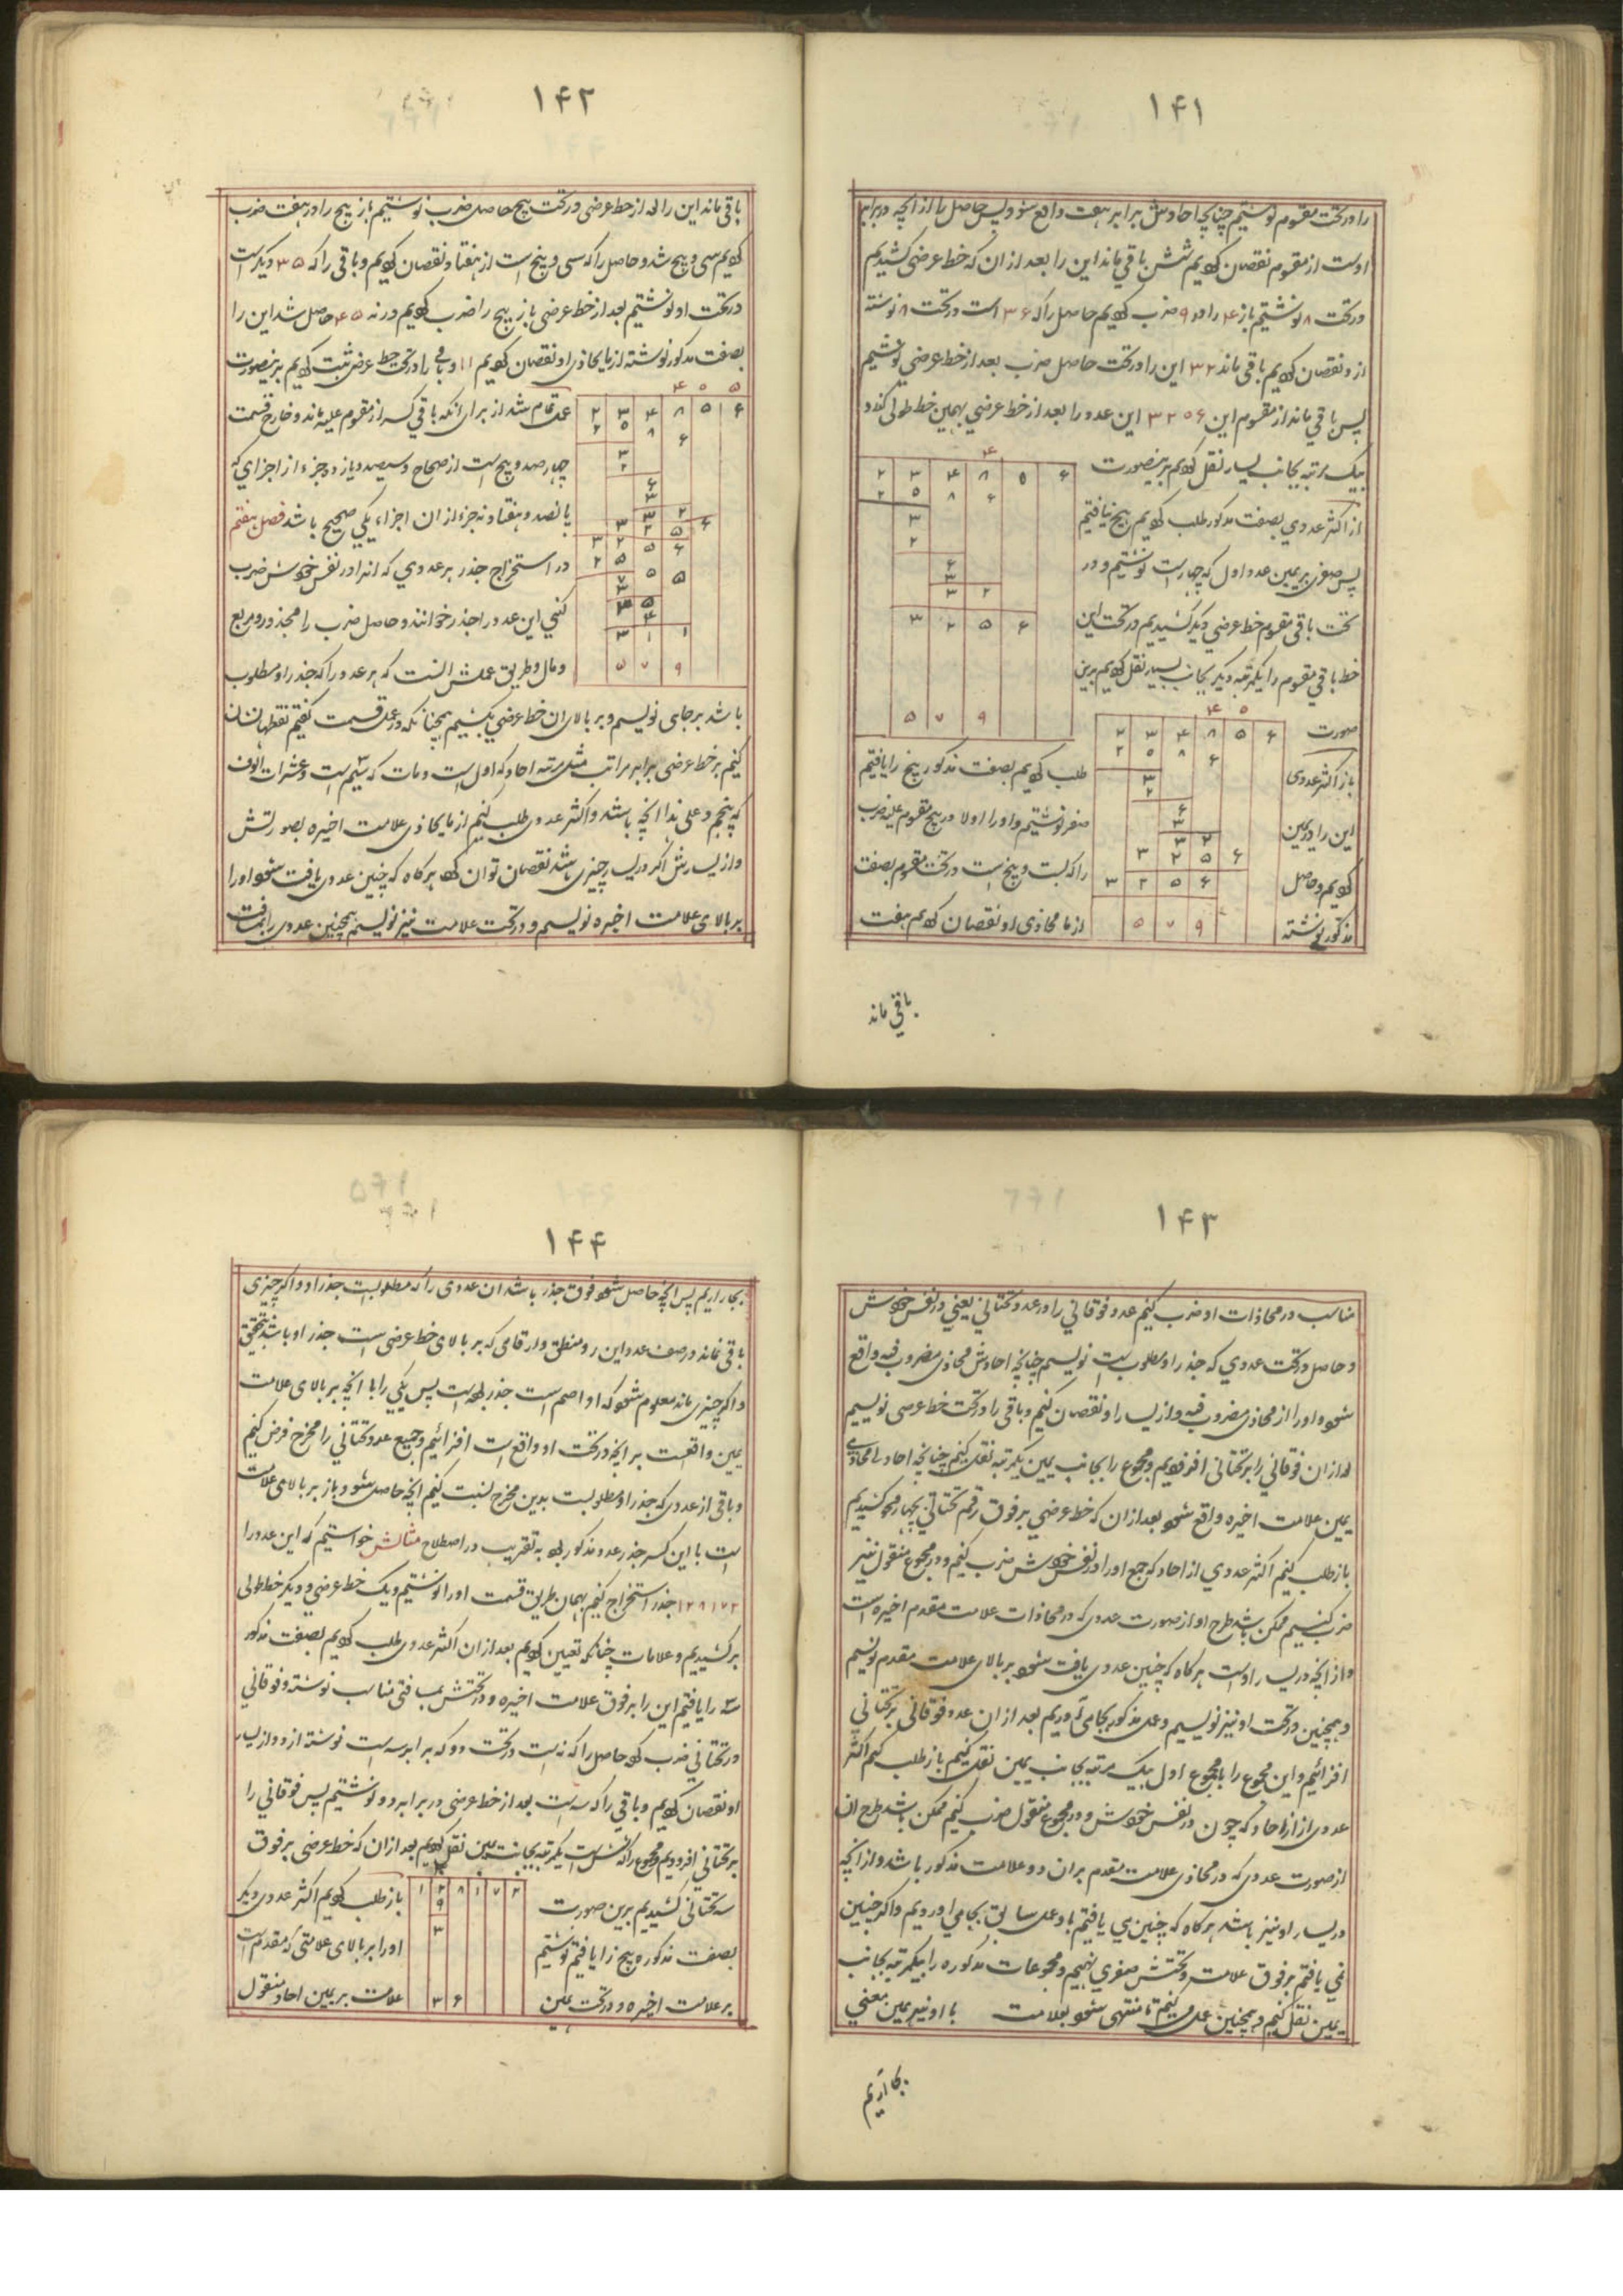 ۱۴۱
را در تحت مقسوم نوشتیم چنانچه احادش برابر هفت واقع شود پس حاصل را از آنچه در برابر
اوست از مقسوم نقصان کردیم شش باقی ماند این را بعد از ان که خط عرضی کشیدیم
در تحت ۸ نوشتیم باز ۴ را در ۹ ضرب کردیم حاصل را که ۳۶ است در تحت ۸ نوشته
ازو نقصان کردیم باقی ماند ۳۲ این را در تحت حاصل ضرب بعد از خط عرضی نوشتیم
پس باقی ماند از مقسوم این ۳۲۵۶ این عدد را بعد از خط عرضی بهمین خط طولی
بیک مرتبه بجانب یسار نقل کردیم برینصورت
۴
۲ ۳ ۴ ۸ ۵ ۶
۲ ۵ ۸ ۶
۳
۲
۶
۳
۳ ۲
۳ ۲ ۵ ۶
۵ ۷ ۹
از اکثر عددی بصفت مذکور طلب کردیم هیچ نیافتیم
پس صفری بر یمین عدد اول که چهار است نوشتیم و در
تحت باقی مقسوم خط عرضی دیگر کشیدیم در تحت این
خط باقی مقسوم را یکمرتبه دیگر بجانب یسار نقل کردیم برین
صورت
۴ ۰
۲ ۳ ۴ ۸ ۵ ۶
۲ ۵ ۸ ۶
۳
۲
۶
۳
۳ ۲
۳ ۲ ۵ ۶
۳ ۲ ۵ ۶
۵ ۷ ۹
باز اکثر عددی طلب کردیم بصفت مذکور پنج را یافتیم
این را در یمین صفر نوشتیم و او را اولا در پنج مقسوم علیه ضرب
کردیم و حاصل را که بیست و پنج است در تحت مقسوم بصفت
مذکور نوشته از ما محاذی او نقصان کردیم هفت
باقی ماند
۱۴۲
باقی ماند این را بعد از خط عرضی در تحت پنج حاصل ضرب نوشتیم باز پنج را در هفت ضرب
کردیم سی و پنج شد و حاصل را که سی و پنج است از هفتاد نقصان کردیم و باقی را که ۳۵ دیگر است
در تحت او نوشتیم بعد از خط عرضی باز پنج را ضرب کردیم در نه ۴۵ حاصل شد این را
بصفت مذکور نوشته از ما یحاذی او نقصان کردیم ۱۱ و باقی را در تحت خط عرضی ثبت کردیم برینصورت
۴ ۰ ۵
۲ ۳ ۴ ۸ ۵ ۶
۲ ۵ ۸ ۶
۳
۲
۶
۳
۳ ۲
۳ ۲ ۵ ۶
۳ ۲ ۵ ۶
۲ ۵ ۵ ۵
۷
۳
۳ ۵
۴
۳ ۱ ۱
۵ ۷ ۹
عمل تمام شد از برای انکه باقی کسر از مقسوم علیه ماند و خارج قسمت
چهار صد و پنج است از صحاح و سیصد و یازده جزء از اجزای که
پانصد و هفتاد و نه جزء از ان اجزاء یکی صحیح باشد فصل هفتم
در استخراج جذر هر عددی که انرا در نفس خودش ضرب
کنی این عدد را جذر خوانند و حاصل ضرب را مجذور و مربع
و مال و طریق عملش انست که هر عدد را که جذر او مطلوب
باشد بر جای نویسیم و بر بالای ان خط عرضی بکشیم همچنانکه در عمل قسمت گفتیم نقطها نشان
کنیم بر خط عرضی برابر مراتب مثل مرتبه احاد که اول است و مات که سیم است و عشرات الوف
که پنجم و علی هذا انچه باشد و اکثر عددی طلب کنیم از ما یحاذی علامت اخیره بصورتش
و از یسارش اگر در یسار چیزی باشد نقصان توان کرد هرکاه که چنین عددی یافت شود او را
بر بالای علامت اخیره نویسیم و در تحت علامت نیز نویسیم همچنین عددی را بمسافت
۱۴۳
مناسب در محاذات او ضرب کنیم عدد فوقانی را در عدد تحتانی یعنی در نفس خودش
و حاصل در تحت عددی که جذر او مطلوبست نویسیم چنانچه احادش محاذی مضروب فیه واقع
شود و او را از محاذی مضروب فیه و از یسار او نقصان کنیم و باقی را در تحت خط عرضی نویسیم
بعد ازان فوقانی را بر تحتانی افزودیم و مجموع را بجانب یمین یکمرتبه نقل کنیم چنانچه احاد با محاذی
یمین علامت اخیره واقع شود بعد ازان که خط عرضی بر فوق رقم تحتانی کشیدیم
باز طلب کنیم اکثر عددی از احاد که جمع او را در نفس خودش ضرب کنیم و در مجموع منقول نیز
ضرب کنیم ممکن باشد طرح او از صورت عددی که در محاذات علامت مقدم اخیره است
و از انچه در یسار اوست هرکاه که چنین عددی یافت شود بر بالای علامت مقدم نویسیم
و همچنین در تحت او نیز نویسیم و عمل مذکور بجا می آوریم بعد ازان عدد فوقانی بر تحتانی
افزائیم و این مجموع را با مجموع اول بیک مرتبه بجانب یمین نقل کنیم باز طلب کنیم اکثر
عددی از احاد که چون در نفس خودش و در مجموع منقول ضرب کنیم ممکن باشد طرح ان
از صورت عددی که در محاذی علامت مقدم بران دو علامت مذکور باشد و از انچه
در یسار او نیز باشد هرکاه که چنین می یافتیم با و عمل سابق بجا می اوردیم و اکر چنین
نمی یافتیم بر فوق علامت و تحتش صفری نهیم و مجموعات مذکوره را بیکمرتبه بجانب
یمین نقل کنیم و همچنین عمل میکنیم تا منتهی شود بعلامت با او نیز یمین معنی
بجا آریم
۱۴۴
بجا آریم پس انچه حاصل شود فوق جذر باشد ان عددی را که مطلوبست جذر او و اکر چیزی
باقی نماند در صف عدد این رو منطق و ارقامی که بر بالای خط عرضی است جذر او باشد بتحقیق
و اکر چیزی ماند معلوم شود که او اصم است پس یکی را با انچه بر بالای علامت
یمین واقعست بر انچه در تحت او واقع است افزائیم و جمیع عدد تحتانی را مخرج فرض کنیم
و باقی از عددی که جذر او مطلوبست بدین مخرج نسبت کنیم انچه حاصل شود و باز بر بالای علامت
است با این کسر جذر عدد مذکور بود به تقریب در اصطلاح مثالش خواستیم که این عدد را
۱۲۸۱۷۲ جذر استخراج کنیم بهمان طریق قسمت او را نوشتیم و یک خط عرضی و دیگر خط طولی
برکشیدیم و علامات چنانکه تعیین کردیم بعد ازان اکثر عددی طلب کردیم بصفت مذکور
سه را یافتیم این را بر فوق علامت اخیره و در تحتش بمسافتی مناسب نوشته و فوقانی
در تحتانی ضرب کرده حاصل را که نه است در تحت دو که برابر سه است نوشته از دو و از یسار
او نقصان کردیم و باقی را که سه است بعد از خط عرضی در برابر دو نوشتیم پس فوقانی را
بر تحتانی افزودیم و مجموع را که شش است یکمرتبه بجانب یمین نقل کردیم بعد ازان که خط عرضی بر فوق
سه تحتانی کشیدیم برین صورت
۱ ۲ ۸ ۱ ۷ ۲
۹
۳
۳ ۶
باز طلب کردیم اکثر عددی دیگر
بصفت مذکوره پنج را یافتیم نوشتیم او را بر بالای علامتی که مقدم است
بر علامت اخیره و در تحت یمین علامت بر یمین احاد منقول